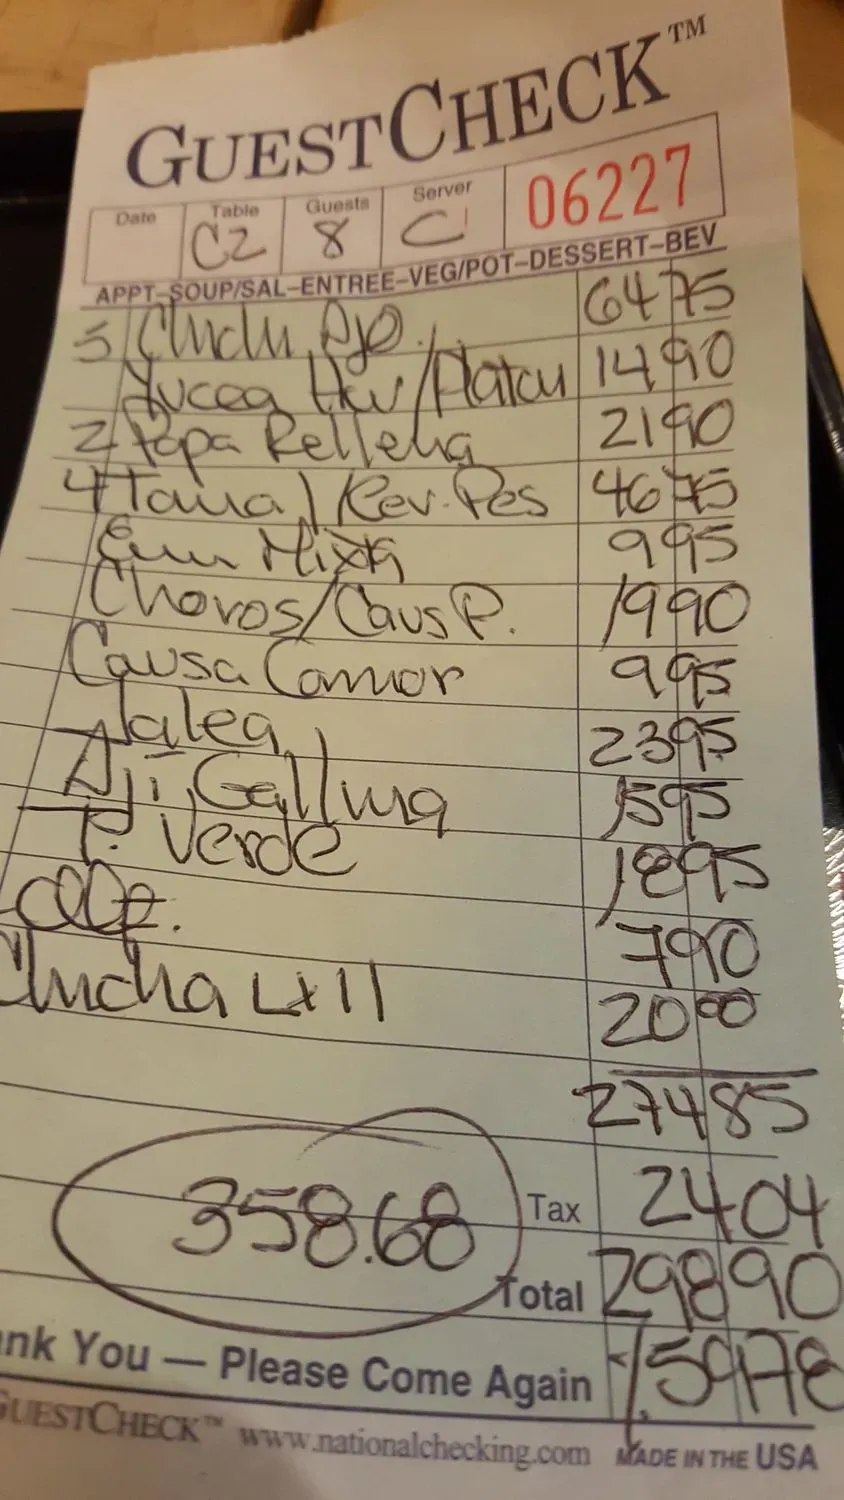 GUESTCHECK™
Date Table Guests Server 06227
C2 8 C
APPT-SOUP/SAL-ENTREE-VEG/POT-DESSERT-BEV
5 6475
Yucca 1490
2 Papa Rellena 2190
4 Tama / Rev. Pes 4675
Mixta 995
Choros/Caus P. 1990
Causa Camar 995
Jalea 2395
Aji Gallina 1595
T. Verde 1895
790
Chicha Lt 11 2000
27485
358.68 Tax 2404
Total 29890
5978
Thank You — Please Come Again
GUESTCHECK™ www.nationalchecking.com MADE IN THE USA